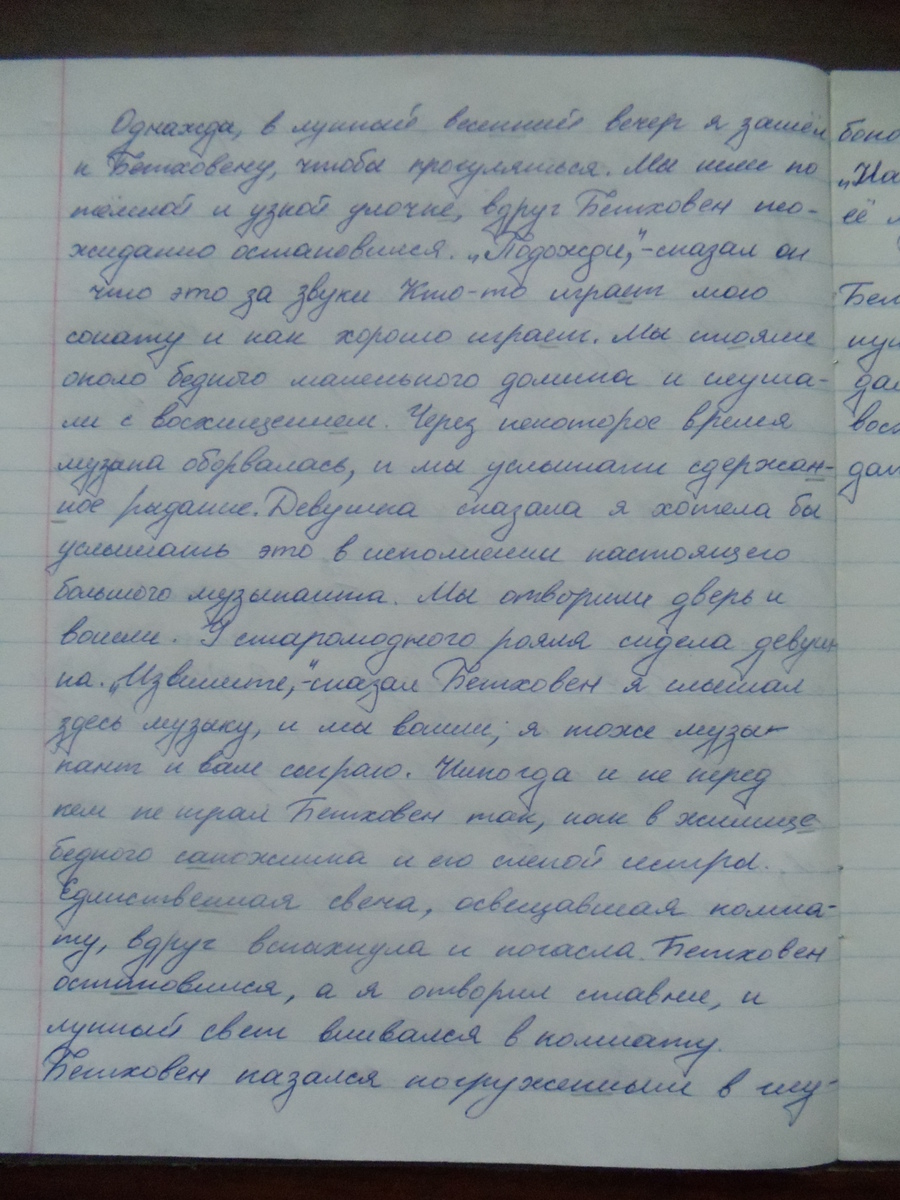 Однажда, в лунный весенний вечер я зашёл
к Бетховену, чтобы прогуляться. Мы шли по
тёмной и узкой улочке, вдруг Бетховен нео-
жиданно остановился. „Подожди," - сказал он
что это за звуки Кто-то играет мою
сонату и как хорошо играет. Мы стояли
около бедного маленького домика и слуша-
ли с восхищением. Через некоторое время
музыка оборвалась, и мы услышали сдержан-
ное рыдание. Девушка сказала я хотела бы
услышать это в исполнении настоящего
большого музыканта. Мы отворили дверь и
вошли. У старомодного рояля сидела девуш-
ка. „Извините," - сказал Бетховен я слышал
здесь музыку, и мы вошли; я тоже музы-
кант и вам сыграю. Никогда и не перед
кем не играл Бетховен так, как в жилище
бедного сапожника и его слепой сестры.
Единственная свеча, освещавшая комна-
ту, вдруг вспыхнула и погасла. Бетховен
остановился, а я отворил ставни, и
лунный свет вливался в комнату.
Бетховен казался погруженным в глу-
„На
её